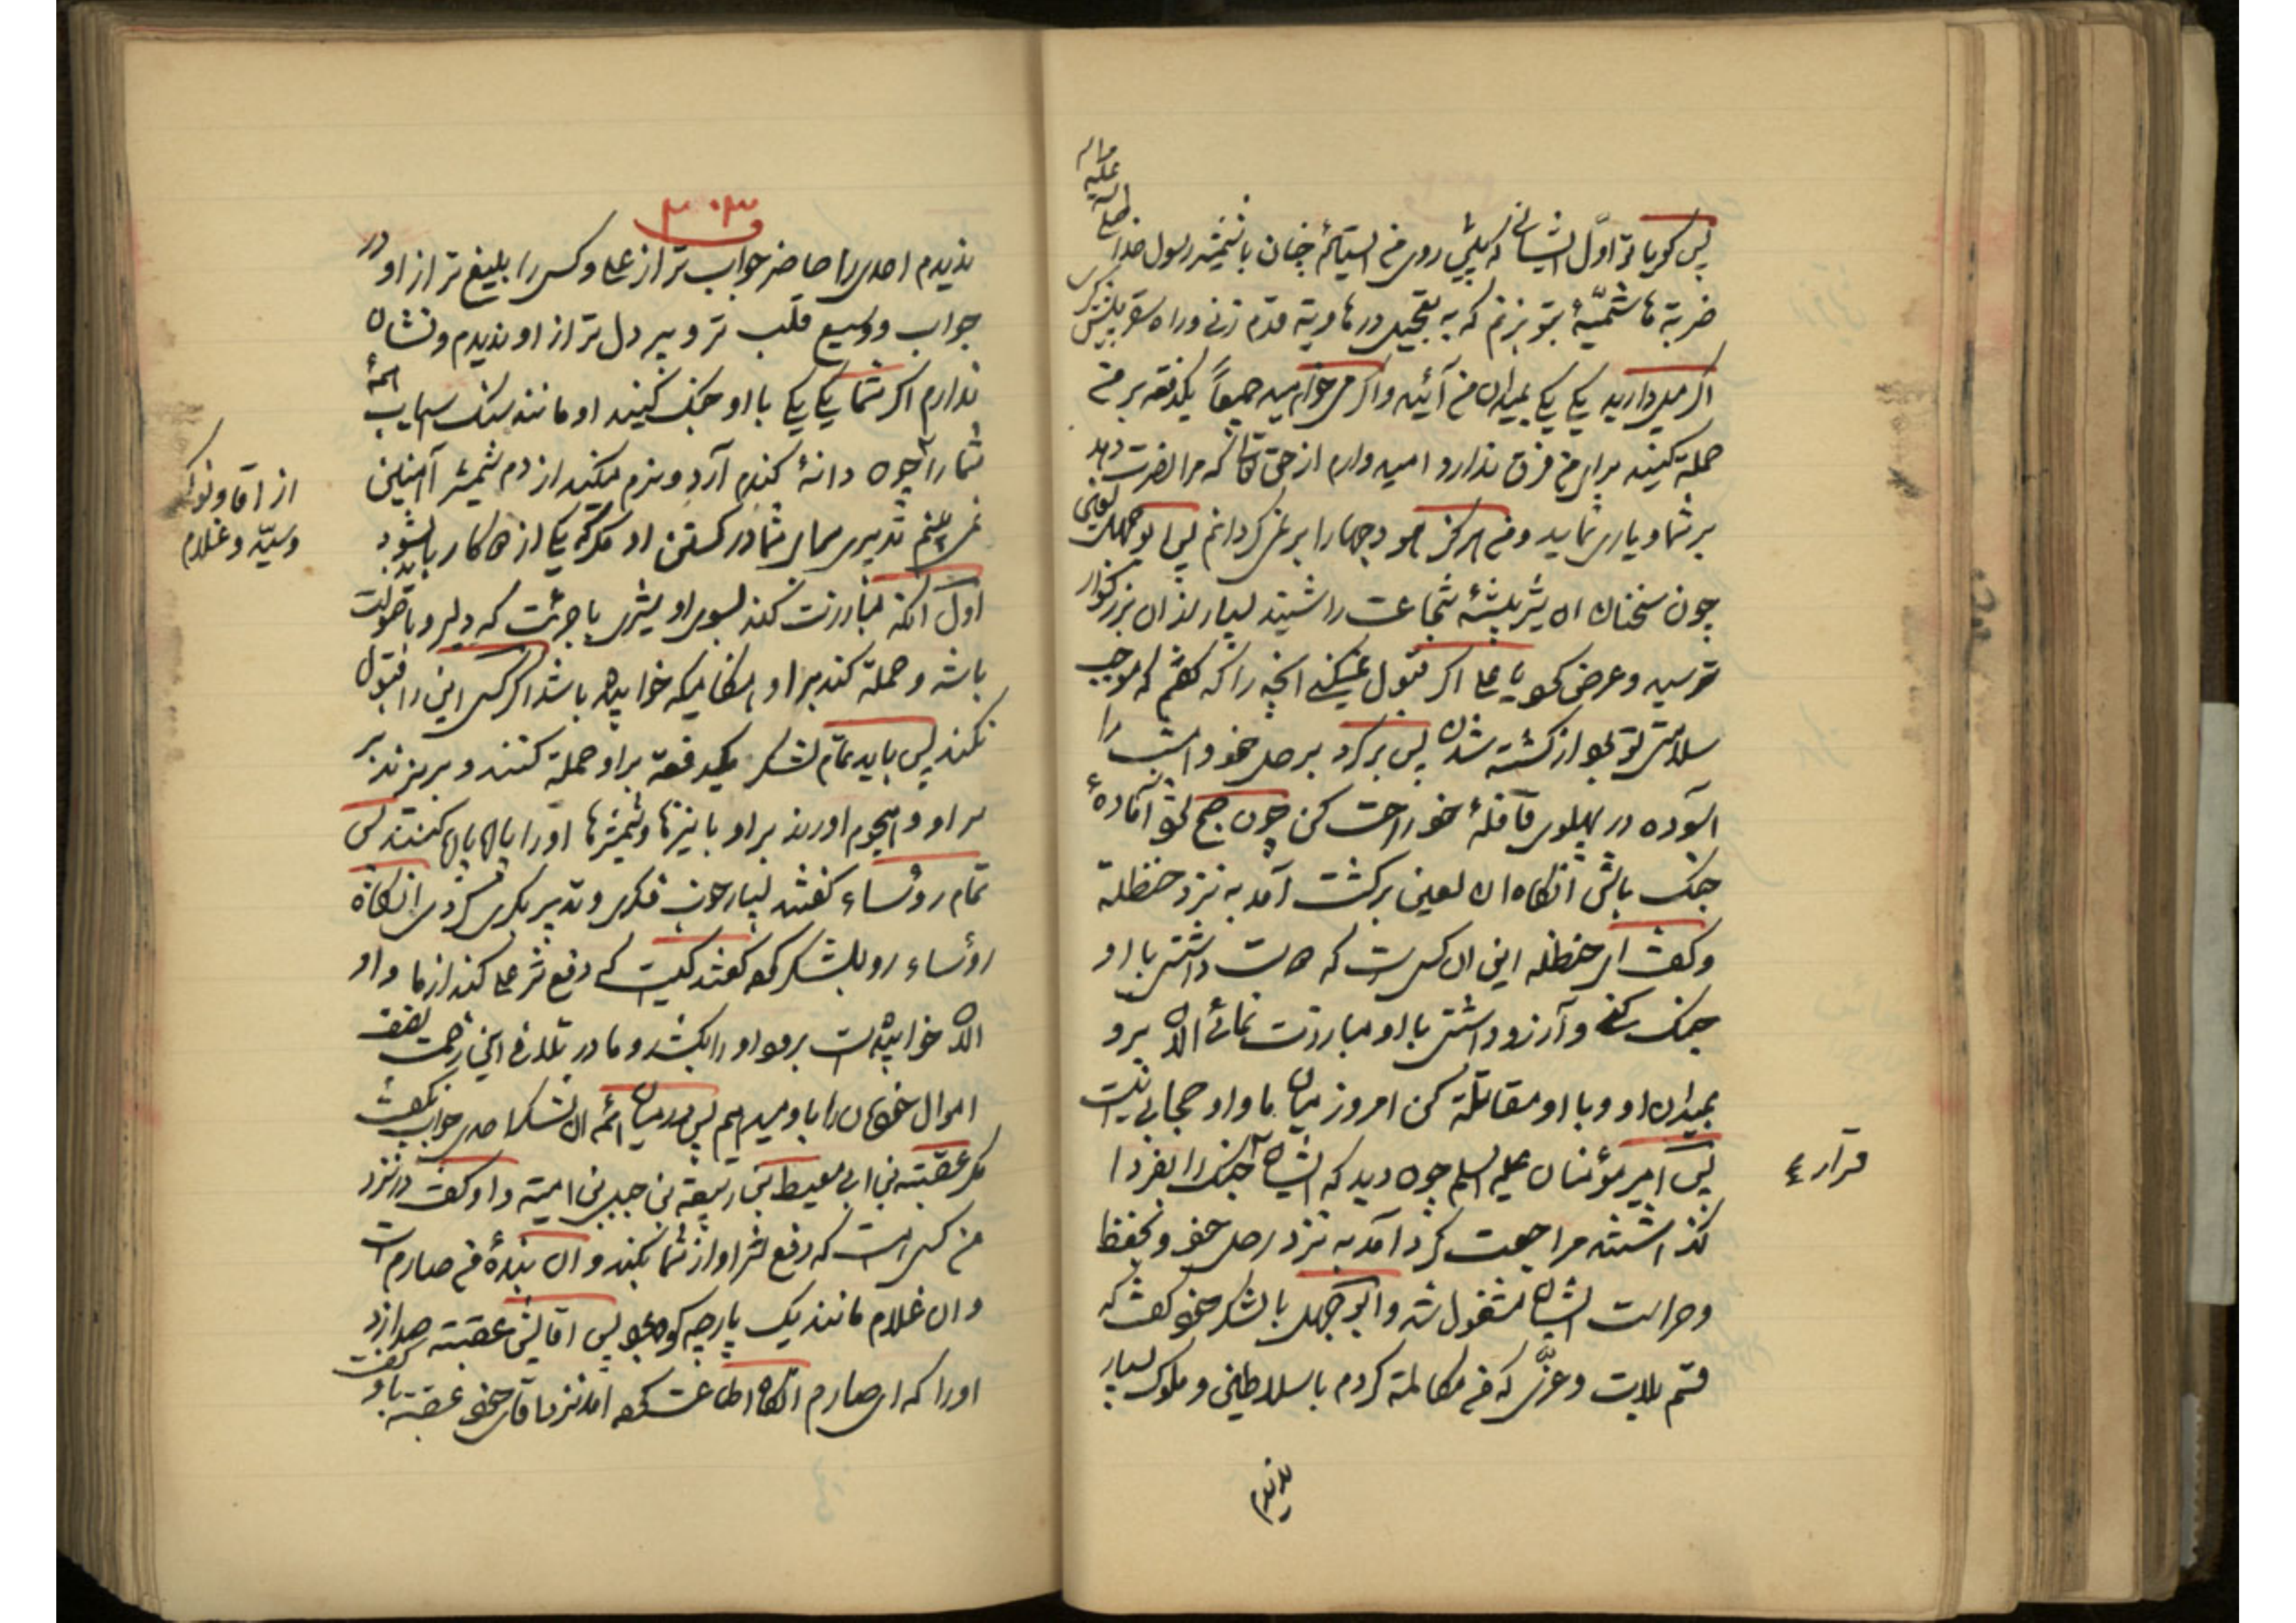 پس گویا تو اول ایشانی که پیش روی من ایستاده چنان با شمشیر رسول خدا صلی الله علیه واله
ضربة هاشمیّهٔ بتو بزنم که به تعجیل در هاویة قدم زنی و راه سقر پیش گیری
اگر میل دارید یکی یکی بمیدان من آئید و اگر می خواهید جمیعاً یکدفعه بر من
حملة کنید برای من فرق ندارد و امید وارم از حق تعالی که مرا نصرت دهد
بر شما و یاری نماید و من هرگز رو را بر نمی گردانم پس ابو جهل لعین
چون سخنان ان شیر بیشهٔ شجاعت را شنید بسیار از ان بزرگوار
ترسید و عرض کرد یا علی اگر قبول نمیکنی انچه را که گفتم که موجب
سلامتی تو بود از کشته شدن پس برگرد بر محل خود و امشب را
آسوده در پهلوی قافلهٔ خود راحت کن چون صبح شود آمادهٔ
جنک باش انگاه ان لعین برگشت آمد به نزد حنظلة
و گفت ای حنظله این ان کسی است که دوست داشتی با او
جنک کنی و آرزو داشتی با او مبارزت نمائی الان برو
بمیدان او و با او مقاتلة کن امروز میان ما و او حجابی نیست
پس امیر مؤمنان علیه السلم چون دید که ایشان جنک را بفردا
قرار
گذاشتند مراجعت کرد آمد به نزد رحل خود و بحفظ
و حراست ایشان مشغول شد و ابو جهل با لشکر خود گفت که
قسم بلات و عزّی که من مکالمة کردم با سلاطین و ملوک بسیار
ندیدم
۳۰۳
ندیدم احدی را حاضر جواب تر از علی و کسی را بلیغ تر از او در
جواب و وسیع قلب تر و پر دل تر از او ندیدم و نشان
ندارم اگر شما یکی یکی با او جنک کنید او مانند سنک اسیاب همهٔ
شما را چون دانهٔ گندم آرد و نرم میکند از دم شمشیر آتشین
از آقا و نوکر
و سیّد و غلام
نمی بینم تدبیری برای شما در کشتن او مگر که یکی از دو کار باید بشود
اول انکه مبارزت کند بسوی او شیری با جرئت که دلیر و با صولت
باشد و حملة کند بر او هنگامیکه خوابیده باشد اگر کسی این را قبول
نکند پس باید تمام لشکر یکدفعة بر او حملة کنند و بریزند بر
سر او و هجوم اورند بر او با نیزها و شمشیرها او را پامال کنند پس
تمام رؤساء گفتند بسیار خوب فکری و تدبیر بکری کردی انگاه
رؤساء رو بلشکر کرده گفتند کیست که دفع شر علی کند از ما و او
الان خوابیده است برود او را بکشد و ما در تلافی این زحمت نصف
اموال خودمان را باو میدهیم پس در میان همه ان لشکر احدی جواب نگفت
مگر عقبته بن ابی معیط بن ربیعة بن جبیر بن امیته و او گفت در نزد
من کسی است که دفع شر او از شما بکند و ان بندهٔ من صارم است
و ان غلام مانند یک پارچه کوه بود پس اقایش عقبته صدا زد
اورا که ای صارم انگاه اطاعت کرده امد نزد اقای خود عقبته باو گفت